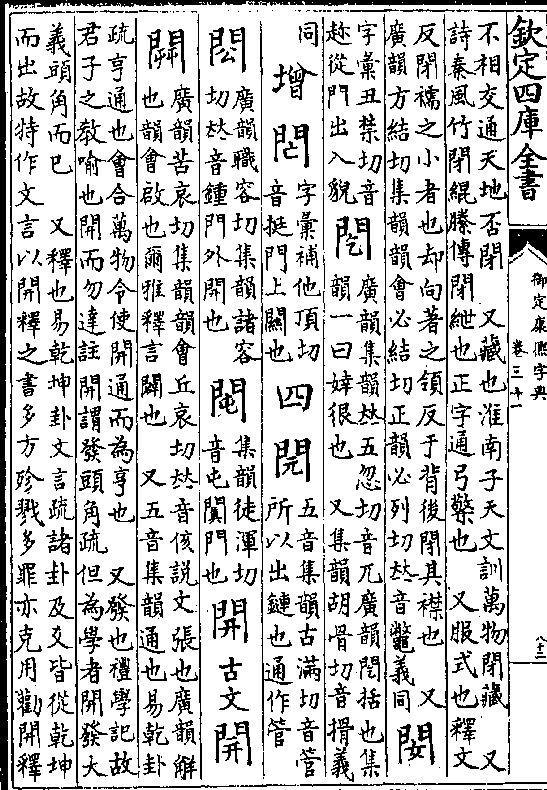 欽定四庫全書
御定康熙字典
卷三十一
不相交通天地否閉 又藏也淮南子天文訓萬物閉藏 又
詩秦風竹閉緄縢傳閉紲也正字通弓檠也 又服式也釋文
反閉襦之小者也却向著之領反于背後閉其襟也 又
廣韻方結切集韻韻會必結切正韻必列切𠀤音鼈義同 
字彙丑禁切音
趁從門出入貌 䦍 廣韻集韻𠀤五忽切音兀廣韻䦍括也集
韻一曰婞很也 又集韻胡骨切音搰義
同 增 字彙補他頂切
音挺門上關也 四 閞 五音集韻古滿切音管
所以出鏈也通作管
閚 廣韻職容切集韻諸容
切𠀤音鍾門外開也 集韻徒渾切
音屯闐門也 開 古文
廣韻苦哀切集韻韻會丘哀切𠀤音侅說文張也廣韻解
也韻會啟也爾雅釋言闢也 又五音集韻通也易乾卦
疏亨通也會合萬物令使開通而為亨也 又發也禮學記故
君子之教喻也開而勿達註開謂發頭角疏但為學者開發大
義頭角而已 又釋也易乾坤卦文言疏諸卦及爻皆從乾坤
而出故特作文言以開釋之書多方殄戮多罪亦克用勸開釋